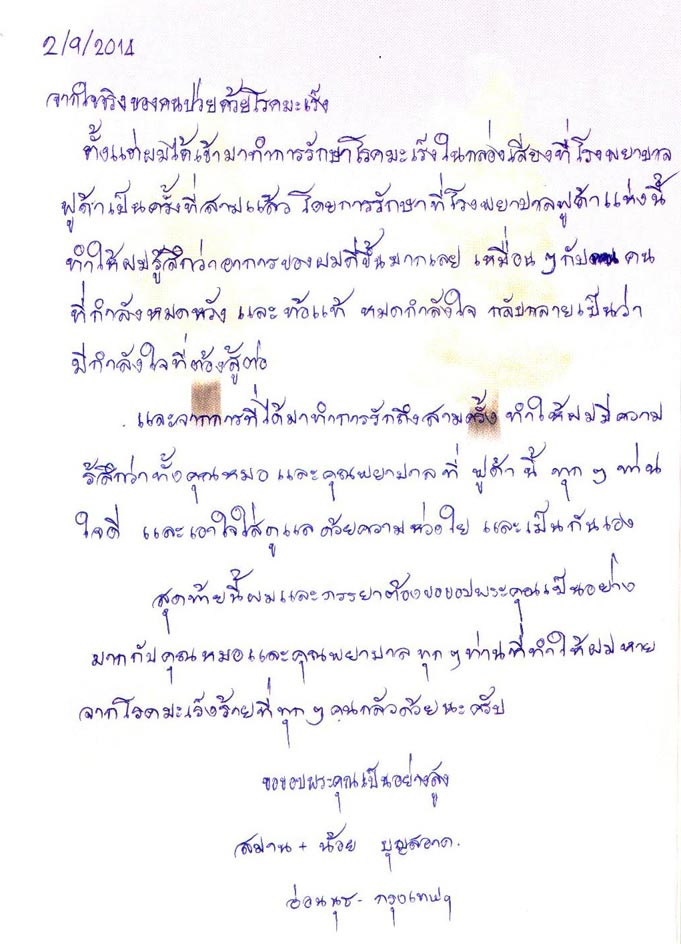 2/9/2014
จากใจจริงของคนป่วยด้วยโรคมะเร็ง
ตั้งแต่ผมได้เข้ามาทำการรักษาโรคมะเร็งในกล่องเสียงที่โรงพยาบาล
ฟูด้าเป็นครั้งที่สามแล้ว โดยการรักษาที่โรงพยาบาลฟูด้าแห่งนี้
ทำให้ผมรู้สึกว่าอาการของผมดีขึ้นมากเลย เหมือน ๆ กับ คน
ที่กำลังหมดหวัง และ ท้อแท้ หมดกำลังใจ กลับกลายเป็นว่า
มีกำลังใจที่ต้องสู้ต่อ
และจากการที่ได้มาทำการรักถึงสามครั้ง ทำให้ผมมีความ
รู้สึกว่าทั้งคุณหมอ และคุณพยาบาลที่ ฟูด้า นี้ ทุก ๆ ท่าน
ใจดี และเอาใจใส่ดูแล ด้วยความห่วงใย และเป็นกันเอง
สุดท้ายนี้ผมและภรรยาต้องขอขอบพระคุณเป็นอย่าง
มากกับคุณหมอและคุณพยาบาล ทุก ๆ ท่านที่ทำให้ผมหาย
จากโรคมะเร็งร้ายที่ทุก ๆ คนกลัวด้วยนะครับ
ขอขอบพระคุณเป็นอย่างสูง
สมาน + น้อย บุญสอาด.
อ่อนนุช - กรุงเทพฯ